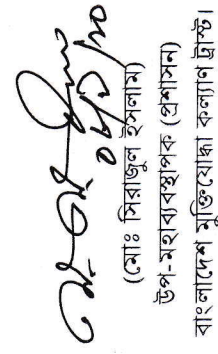 ০৮/১/২০
(মোঃ সিরাজুল ইসলাম)
উপ-মহাব্যবস্থাপক (প্রশাসন)
বাংলাদেশ মুক্তিযোদ্ধা কল্যাণ ট্রাস্ট।